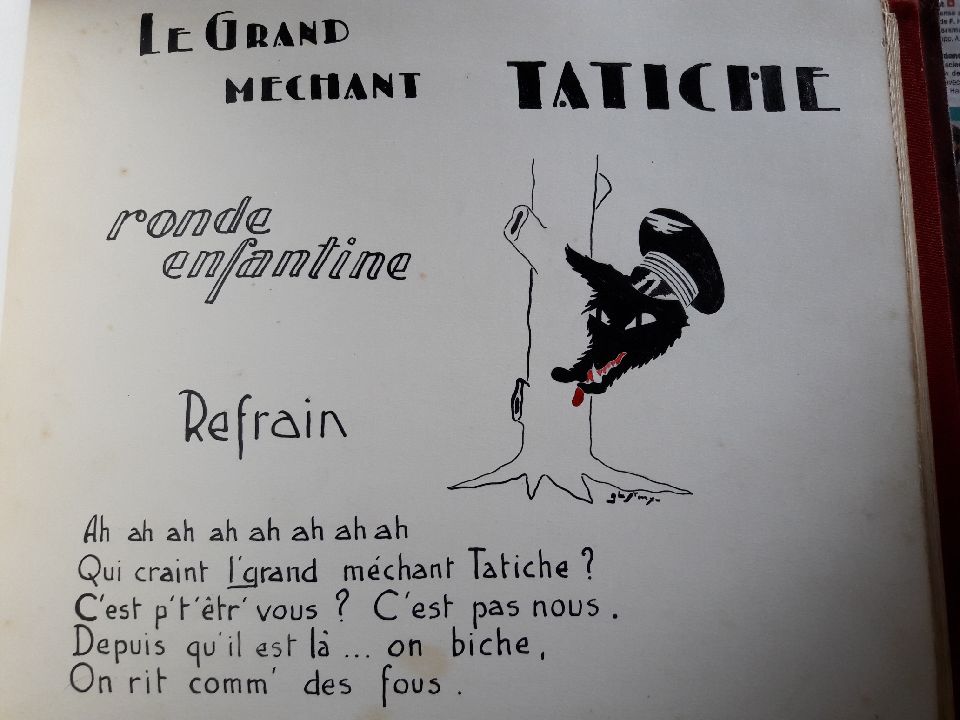 LE GRAND
MECHANT TATICHE
ronde
enfantine
Refrain
Ah ah ah ah ah ah ah ah
Qui craint l'grand méchant Tatiche ?
C'est p't'êtr' vous ? C'est pas nous.
Depuis qu'il est là ... on biche,
On rit comm' des fous.